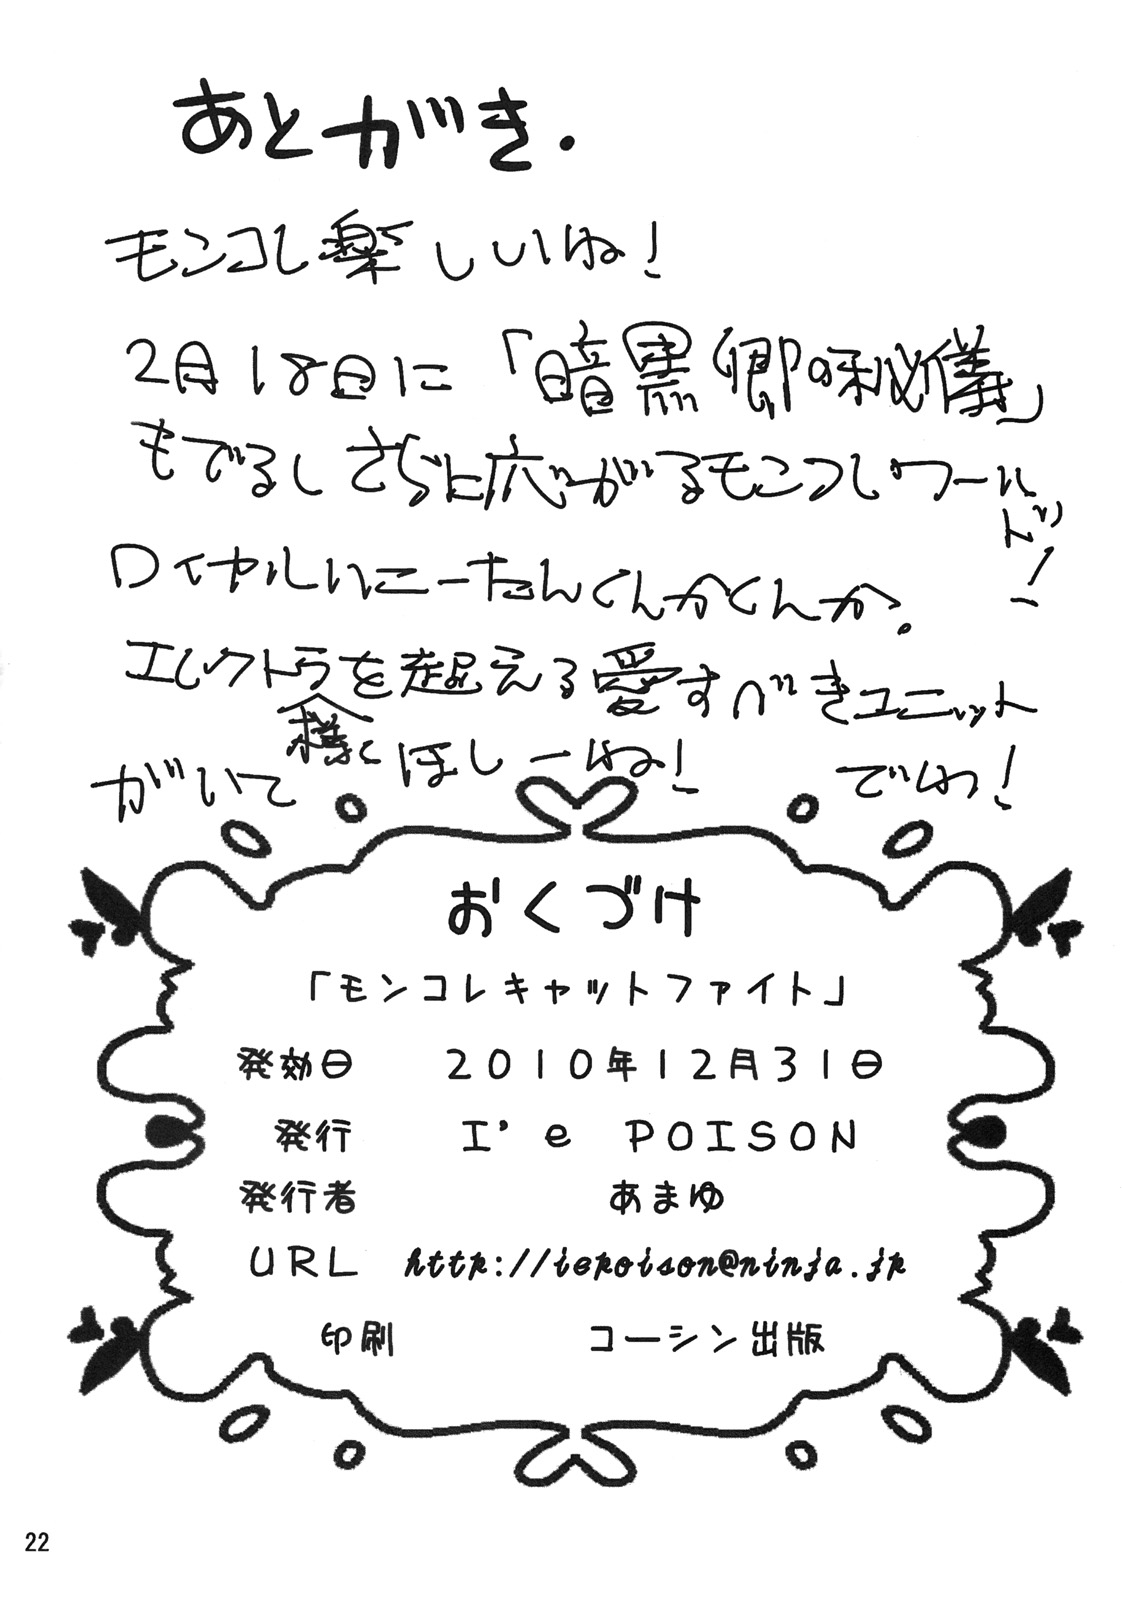 あとがき.
モンコレ楽しいね!
2月18日に「暗黒卿の秘儀」
もでるしさらに広がるモンコレワールドッ!
ロイヤルいこーたんくんかくんか。
エレクトラ様を超える愛すべきユニット
がいてほしーね! でわっ!
おくづけ
「モンコレキャットファイト」
発効日 2010年12月31日
発行 I'e POISON
発行者 あまゆ
URL http://iepoison@ninja.jp
印刷 コーシン出版
22